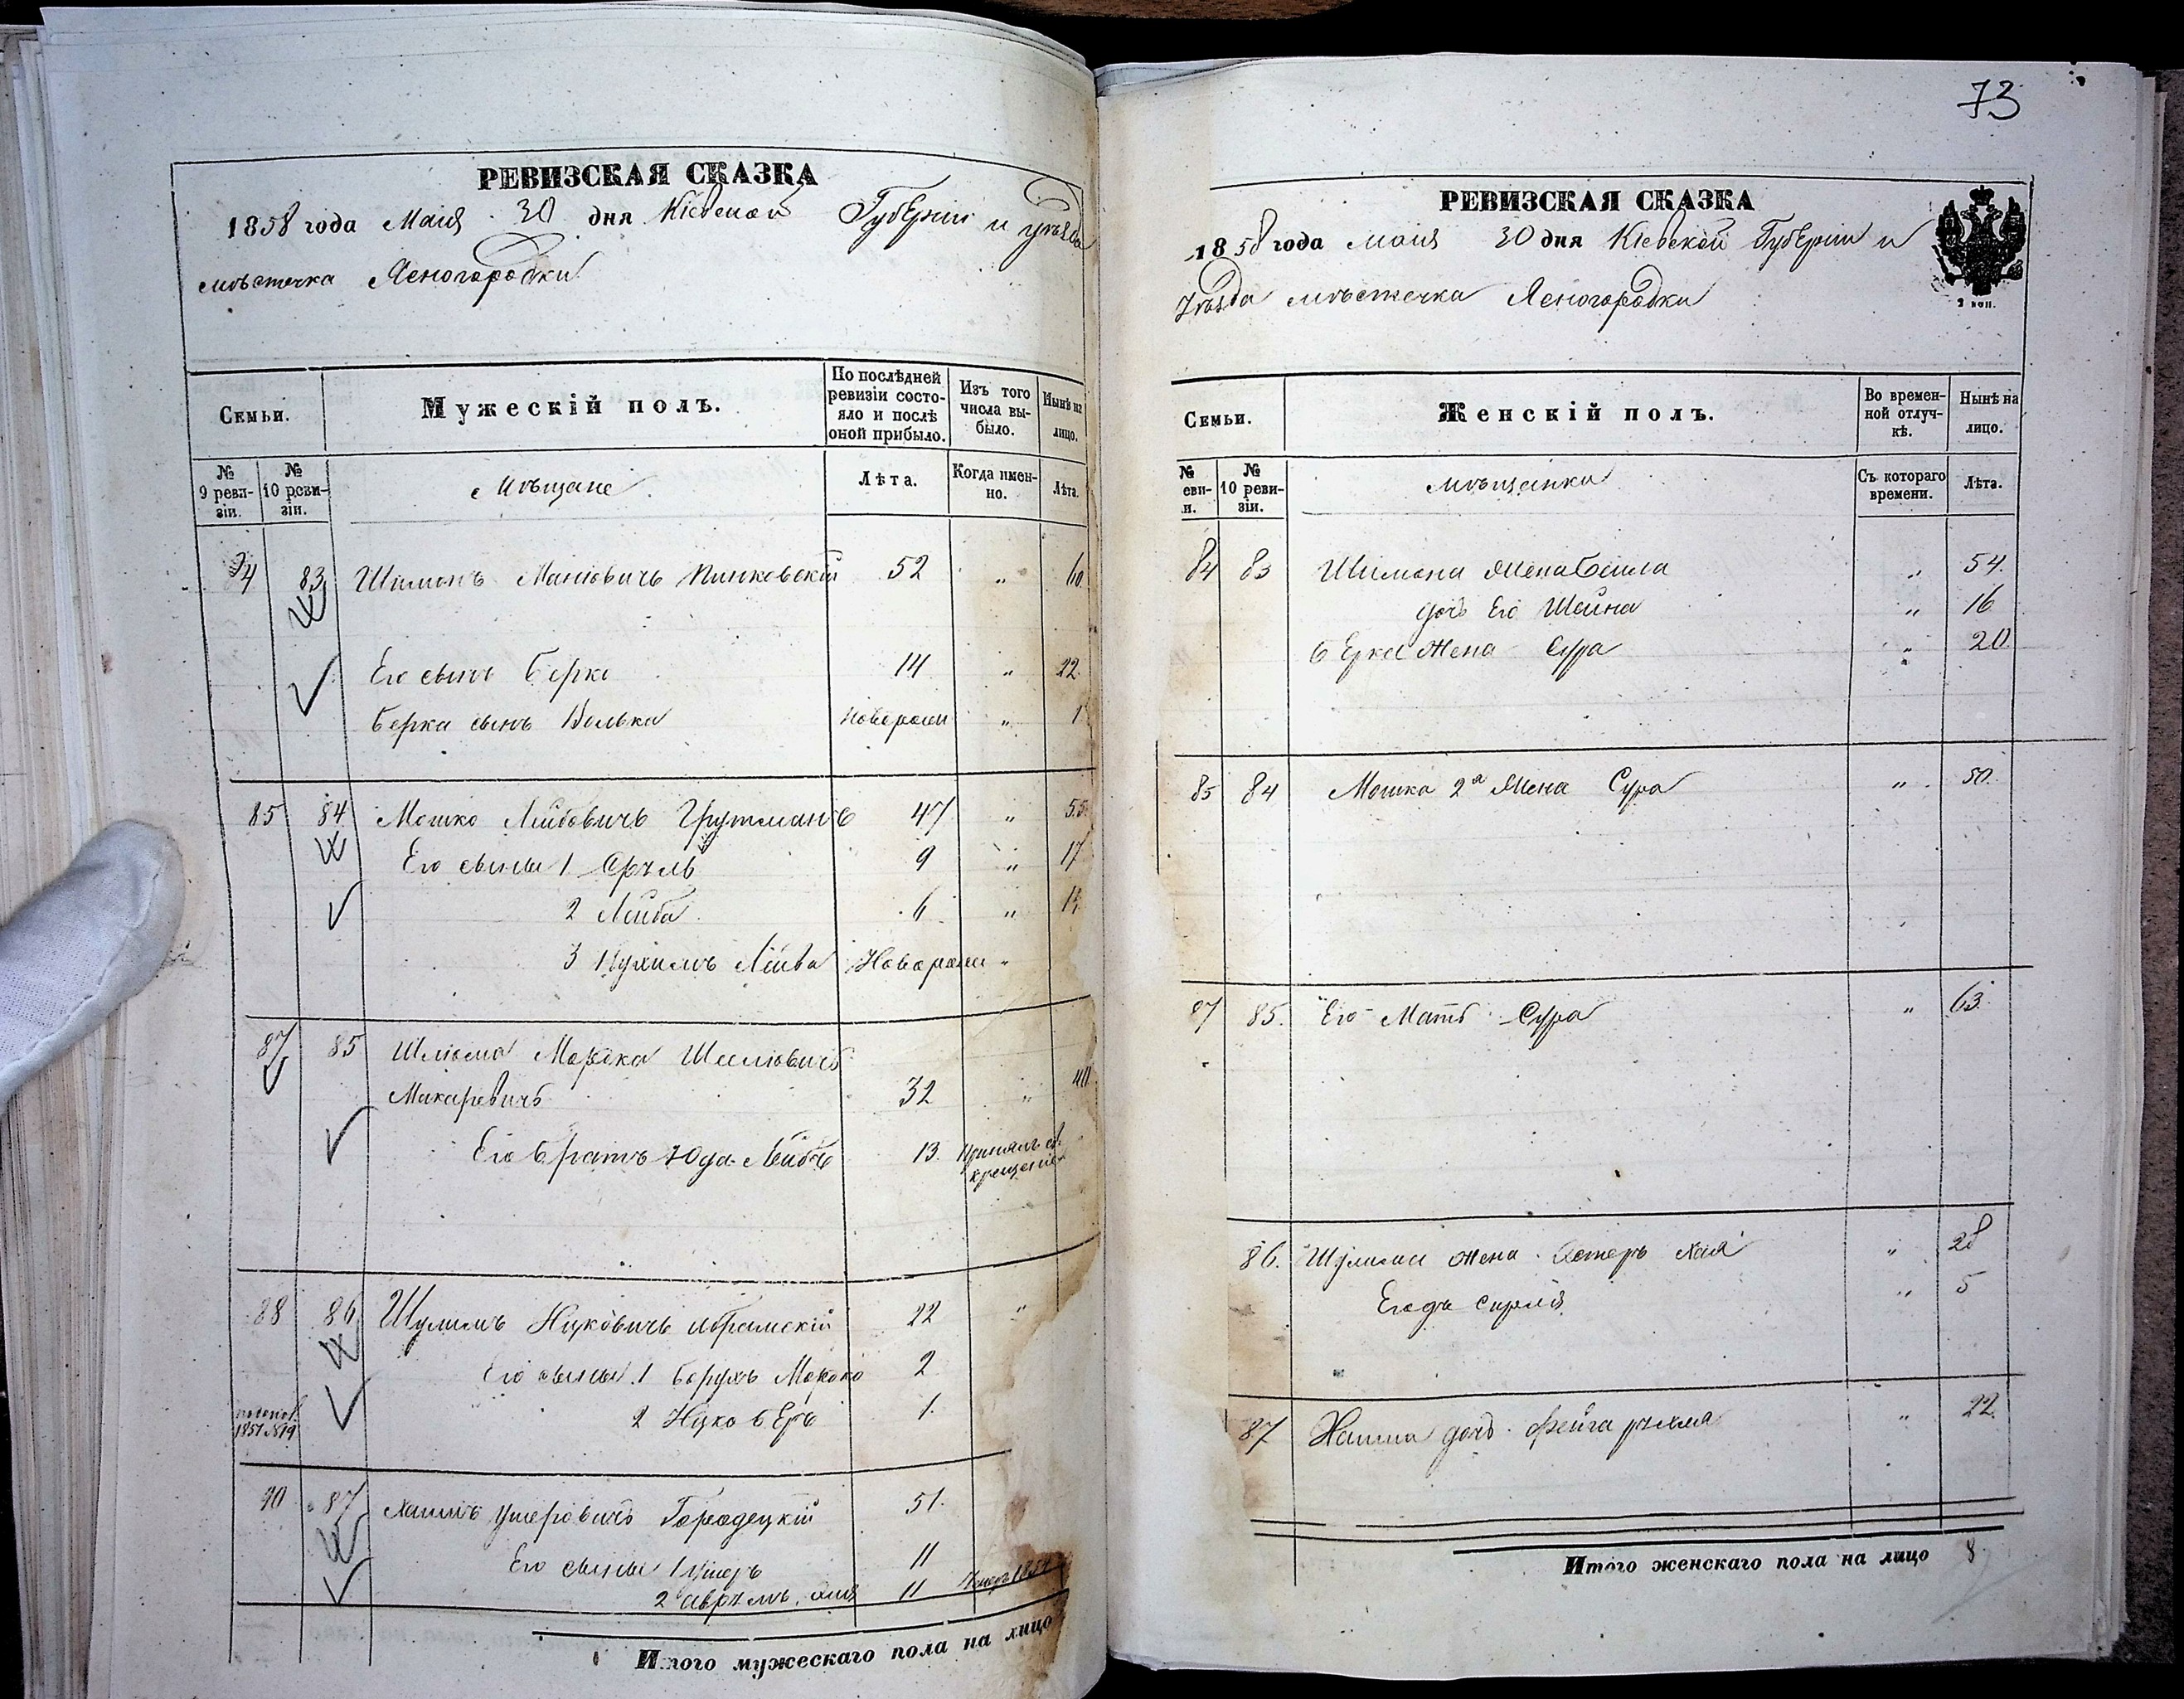 РЕВИЗСКАЯ СКАЗКА
1858 года Маія 30 дня Кіевской Губерніи и уѣзда
мѣстечка Ясногородки
Семьи.
Мужескій полъ.
По послѣдней ревизіи состояло и послѣ оной прибыло.
Изъ того числа выбыло.
Нынѣ на лицо.
№ 9 ревизіи.
№ 10 ревизіи.
Мѣщане
Лѣта.
Когда именно.
Лѣта.
84 83 Шимонъ Маніовичъ Пинковскій 52 " 60
Его сынъ Берко 14 " 22
Берка сынъ Волько новорожд " 1
85 84 Мошко Лейбовичъ Грутманъ 47 " 55
Его сыны 1 Сруль 9 " 17
2 Лейба 6 " 14
3 Нухимъ Лейва Новорожд "
87 85 Шліома Мордка Шмлювичъ
Макаревичъ 32 " 40
Его братъ Юда Лейбъ 13 Принялъ св. крещеніе
88 86 Шулимъ Ицковичъ Абрамскій 22 "
Его сыны 1 Борухъ Мордко 2
2 Ицко Беръ 1
90 87 Хаимъ Ушеровичъ Городецкій 51
Его сыны 1 Ушеръ 11
2 Аврумъ 11 Умеръ 1854
Итого мужескаго пола на лицо
73
РЕВИЗСКАЯ СКАЗКА
1858 года маія 30 дня Кіевской Губерніи и
Уѣзда мѣстечка Ясногородки
2 коп.
Семьи.
Женскій полъ.
Во временной отлучкѣ.
Нынѣ на лицо.
№ еви-и.
№ 10 ревизіи.
мѣщанки
Съ котораго времени.
Лѣта.
84 83 Шимона жена Бейла " 54
дочь Его Шейна " 16
Берка жена Сура " 20
85 84 Мошка 2а жена Сура " 50
87 85. Его Мать Сура " 63
86. Шулима жена Естеръ Хая " 28
Его дъ Сирля " 5
87 Хаима дочь Фейга Рухля " 22
Итого женскаго пола на лицо 8